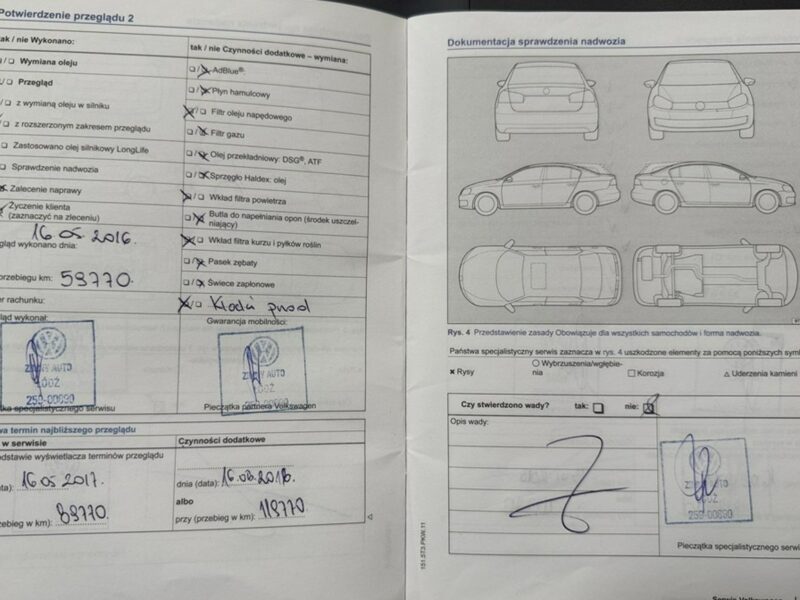 Potwierdzenie przeglądu 2
tak / nie Wykonano:
Wymiana oleju
Przegląd
z wymianą oleju w silniku
z rozszerzonym zakresem przeglądu
Zastosowano olej silnikowy LongLife
Sprawdzenie nadwozia
Zalecenie naprawy
Życzenie klienta
(zaznaczyć na zleceniu)
16.05 2016.
gląd wykonano dnia:
przebiegu km: 59770.
er rachunku:
gląd wykonał:
ŁÓDŹ
259-00690
tka specjalistycznego serwisu
tak / nie Czynności dodatkowe – wymiana:
AdBlue®
Płyn hamulcowy
Filtr oleju napędowego
Filtr gazu
Olej przekładniowy: DSG®, ATF
Sprzęgło Haldex: olej
Wkład filtra powietrza
Butla do napełniania opon (środek uszczel-
niający)
Wkład filtra kurzu i pyłków roślin
Pasek zębaty
Świece zapłonowe
Gwarancja mobilności:
AUTO
ŁÓDŹ
259-00690
Pieczątka partnera Volkswagen
wa termin najbliższego przeglądu
w serwisie
odstawie wyświetlacza terminów przeglądu
ata): 16 05 2017.
zebieg w km): 89770.
Czynności dodatkowe
dnia (data): 16.08.2018.
albo
przy (przebieg w km): 119770
Dokumentacja sprawdzenia nadwozia
Rys. 4 Przedstawienie zasady Obowiązuje dla wszystkich samochodów i forma nadwozia.
Państwa specjalistyczny serwis zaznacza w rys. 4 uszkodzone elementy za pomocą poniższych symb
Rysy
Wybrzuszenia/wgłębie-
nia
Korozja
Uderzenia kamieni
Czy stwierdzono wady? tak: nie:
Opis wady:
AUTO
ŁÓDŹ
259-00690
Pieczątka specjalistycznego serwi
151.5T3.PKW.11
Serwis Volkswagen